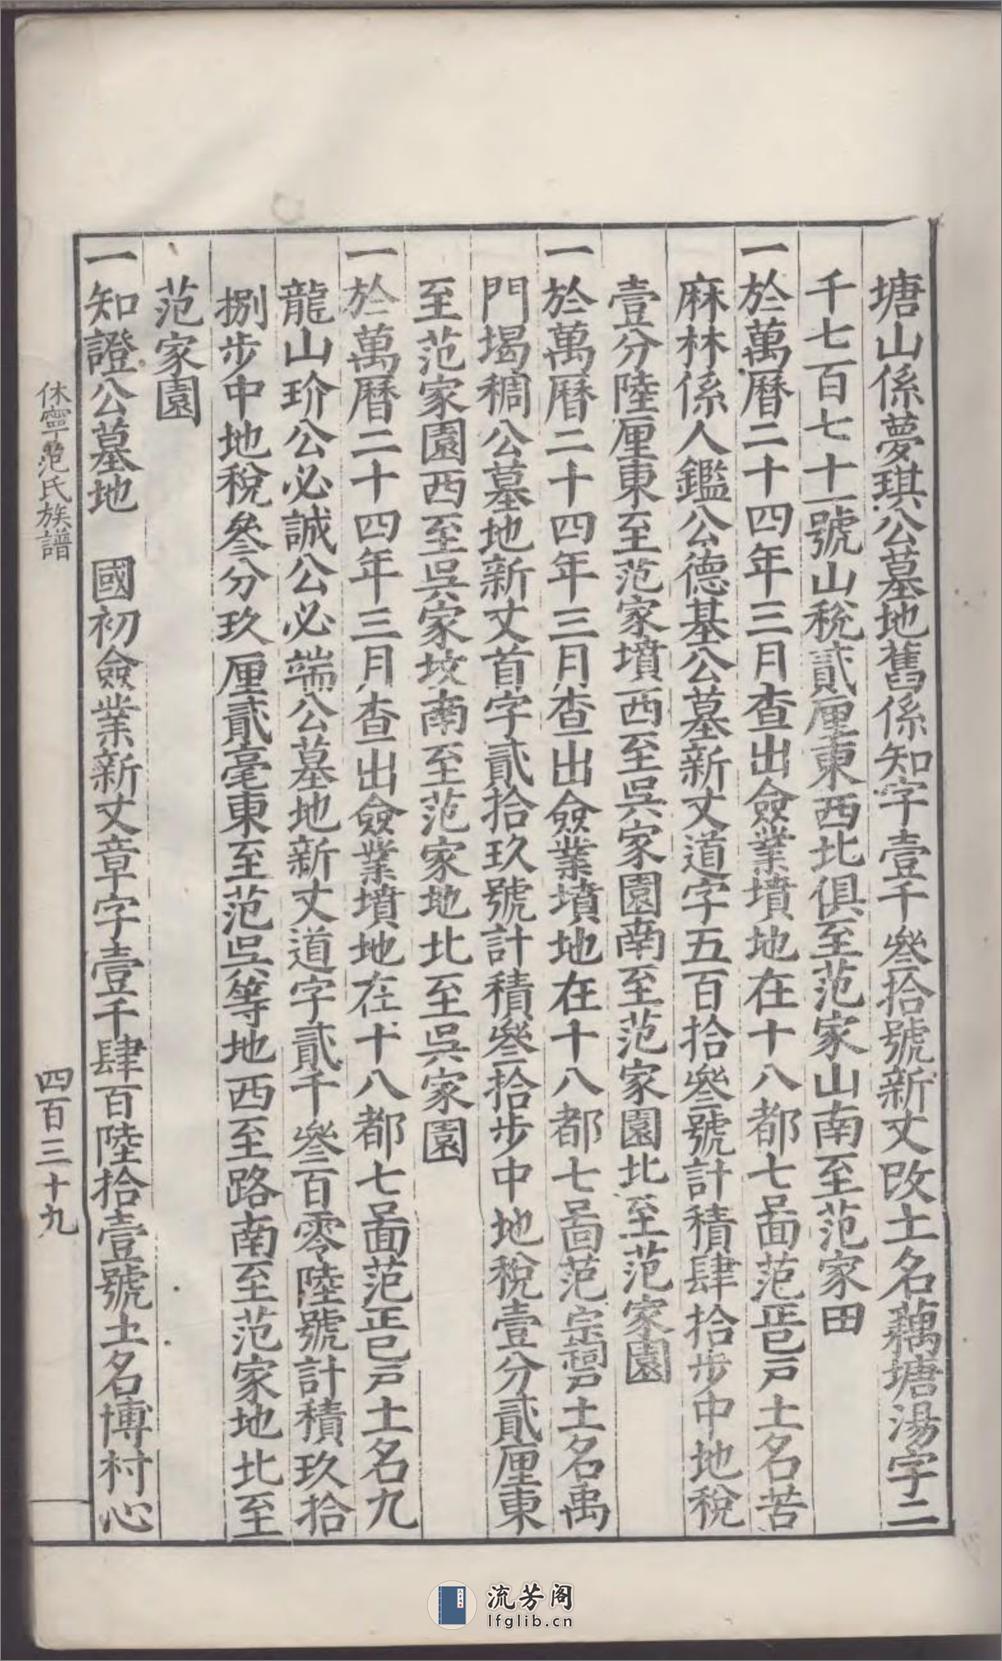 塘山係夢琪公墓地舊係知字壹千叅拾號新丈改土名藕塘湯字二
千七百七十一號山稅貳厘東西北俱至范家山南至范家田
一於萬曆二十四年三月查出僉業墳地在十八都七啚范正巳戸土名苦
麻林係人鑑公德基公墓新丈道字五百拾叅號計積肆拾步中地稅
壹分陸厘東至范家墳西至吳家園南至范家園北至范家園
一於萬曆二十四年三月查出僉業墳地在十八都七啚范宗祠戸土名禹
門堨稠公墓地新丈首字貳拾玖號計積叅拾步中地稅壹分貳厘東
至范家園西至吳家坟南至范家地北至吳家園
一於萬曆二十四年三月查出僉業墳地在十八都七啚范正巳戸土名九
龍山玠公必誠公必端公墓地新丈道字貳千叅百零陸號計積玖拾
捌步中地稅叅分玖厘貳毫東至范吳等地西至路南至范家地北至
范家園
一知證公墓地　國初僉業新丈章字壹千肆百陸拾壹號土名博村心
休寧范氏族譜
四百三十九
流芳阁
lfglib.cn